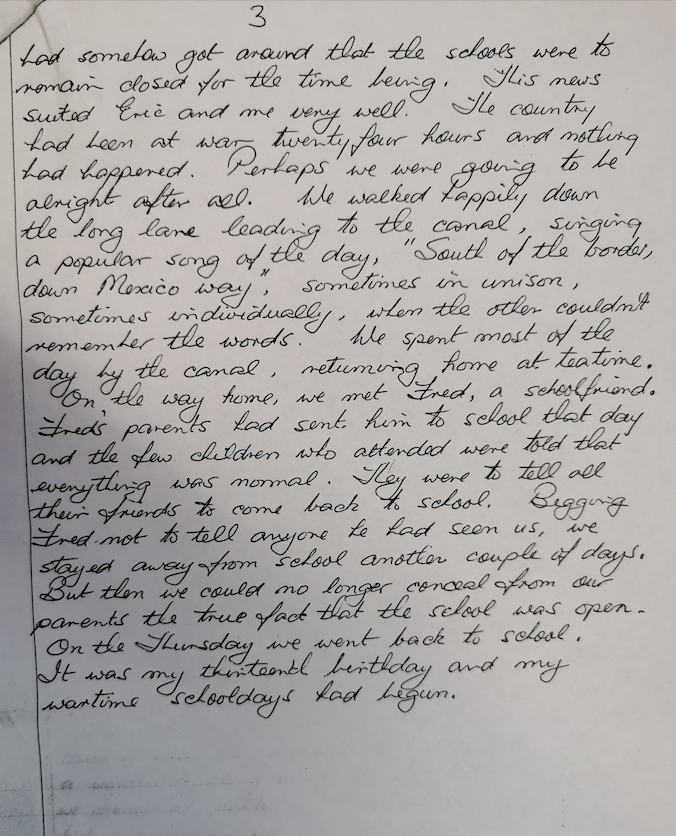 3
had somehow got around that the schools were to
remain closed for the time being. This news
suited Eric and me very well. The country
had been at war twenty four hours and nothing
had happened. Perhaps we were going to be
alright after all. We walked happily down
the long lane leading to the canal, singing
a popular song of the day, "South of the border,
down Mexico way", sometimes in unison,
sometimes individually, when the other couldn't
remember the words. We spent most of the
day by the canal, returning home at teatime.
On the way home, we met Fred, a schoolfriend.
Fred's parents had sent him to school that day
and the few children who attended were told that
everything was normal. They were to tell all
their friends to come back to school. Begging
Fred not to tell anyone he had seen us, we
stayed away from school another couple of days.
But then we could no longer conceal from our
parents the true fact that the school was open.
On the Thursday we went back to school.
It was my thirteenth birthday and my
wartime schooldays had begun.